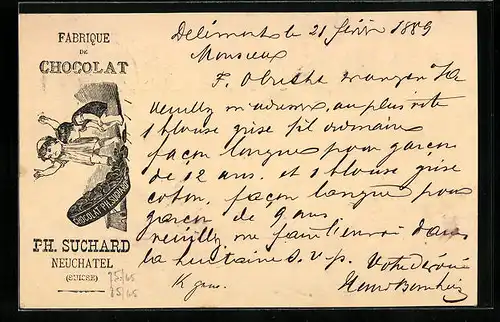 FABRIQUE
DE
CHOCOLAT
CHOCOLAT PH. SUCHARD
PH. SUCHARD
NEUCHATEL
(SUISSE)
Delémont le 21 févr 1889
Monsieur
F.
Veuillez m'adresser, au plus vite
1 blouse grise fil ordinaire
façon longue pour garçon
de 12 ans. et 1 blouse grise
coton, façon longue pour
garçon de 9 ans
veuillez me faire l'envoi dans
la huitaine s.v.p. Votre dévoué